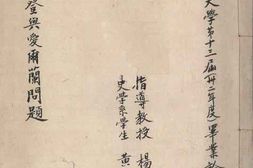 大學第十三屆卅二年度畢業
指導教授 楊
史學系學生 黃
登與愛爾蘭問題